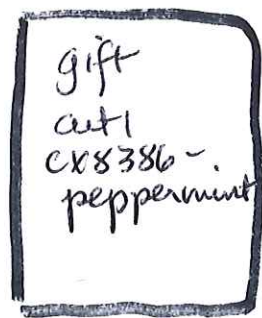 gift
cut 1
CX8386-
peppermint